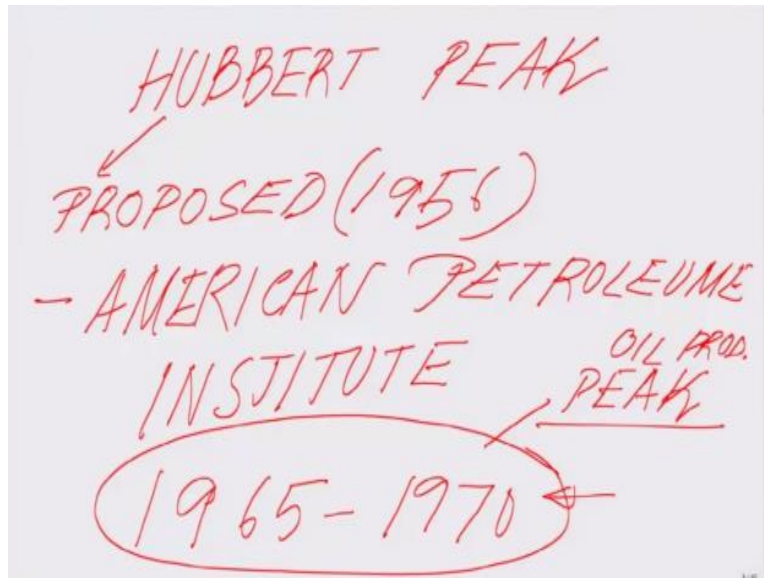 HUBBERT PEAK
PROPOSED (1956)
- AMERICAN PETROLEUME
INSTITUTE
OIL PROD.
PEAK
1965-1970